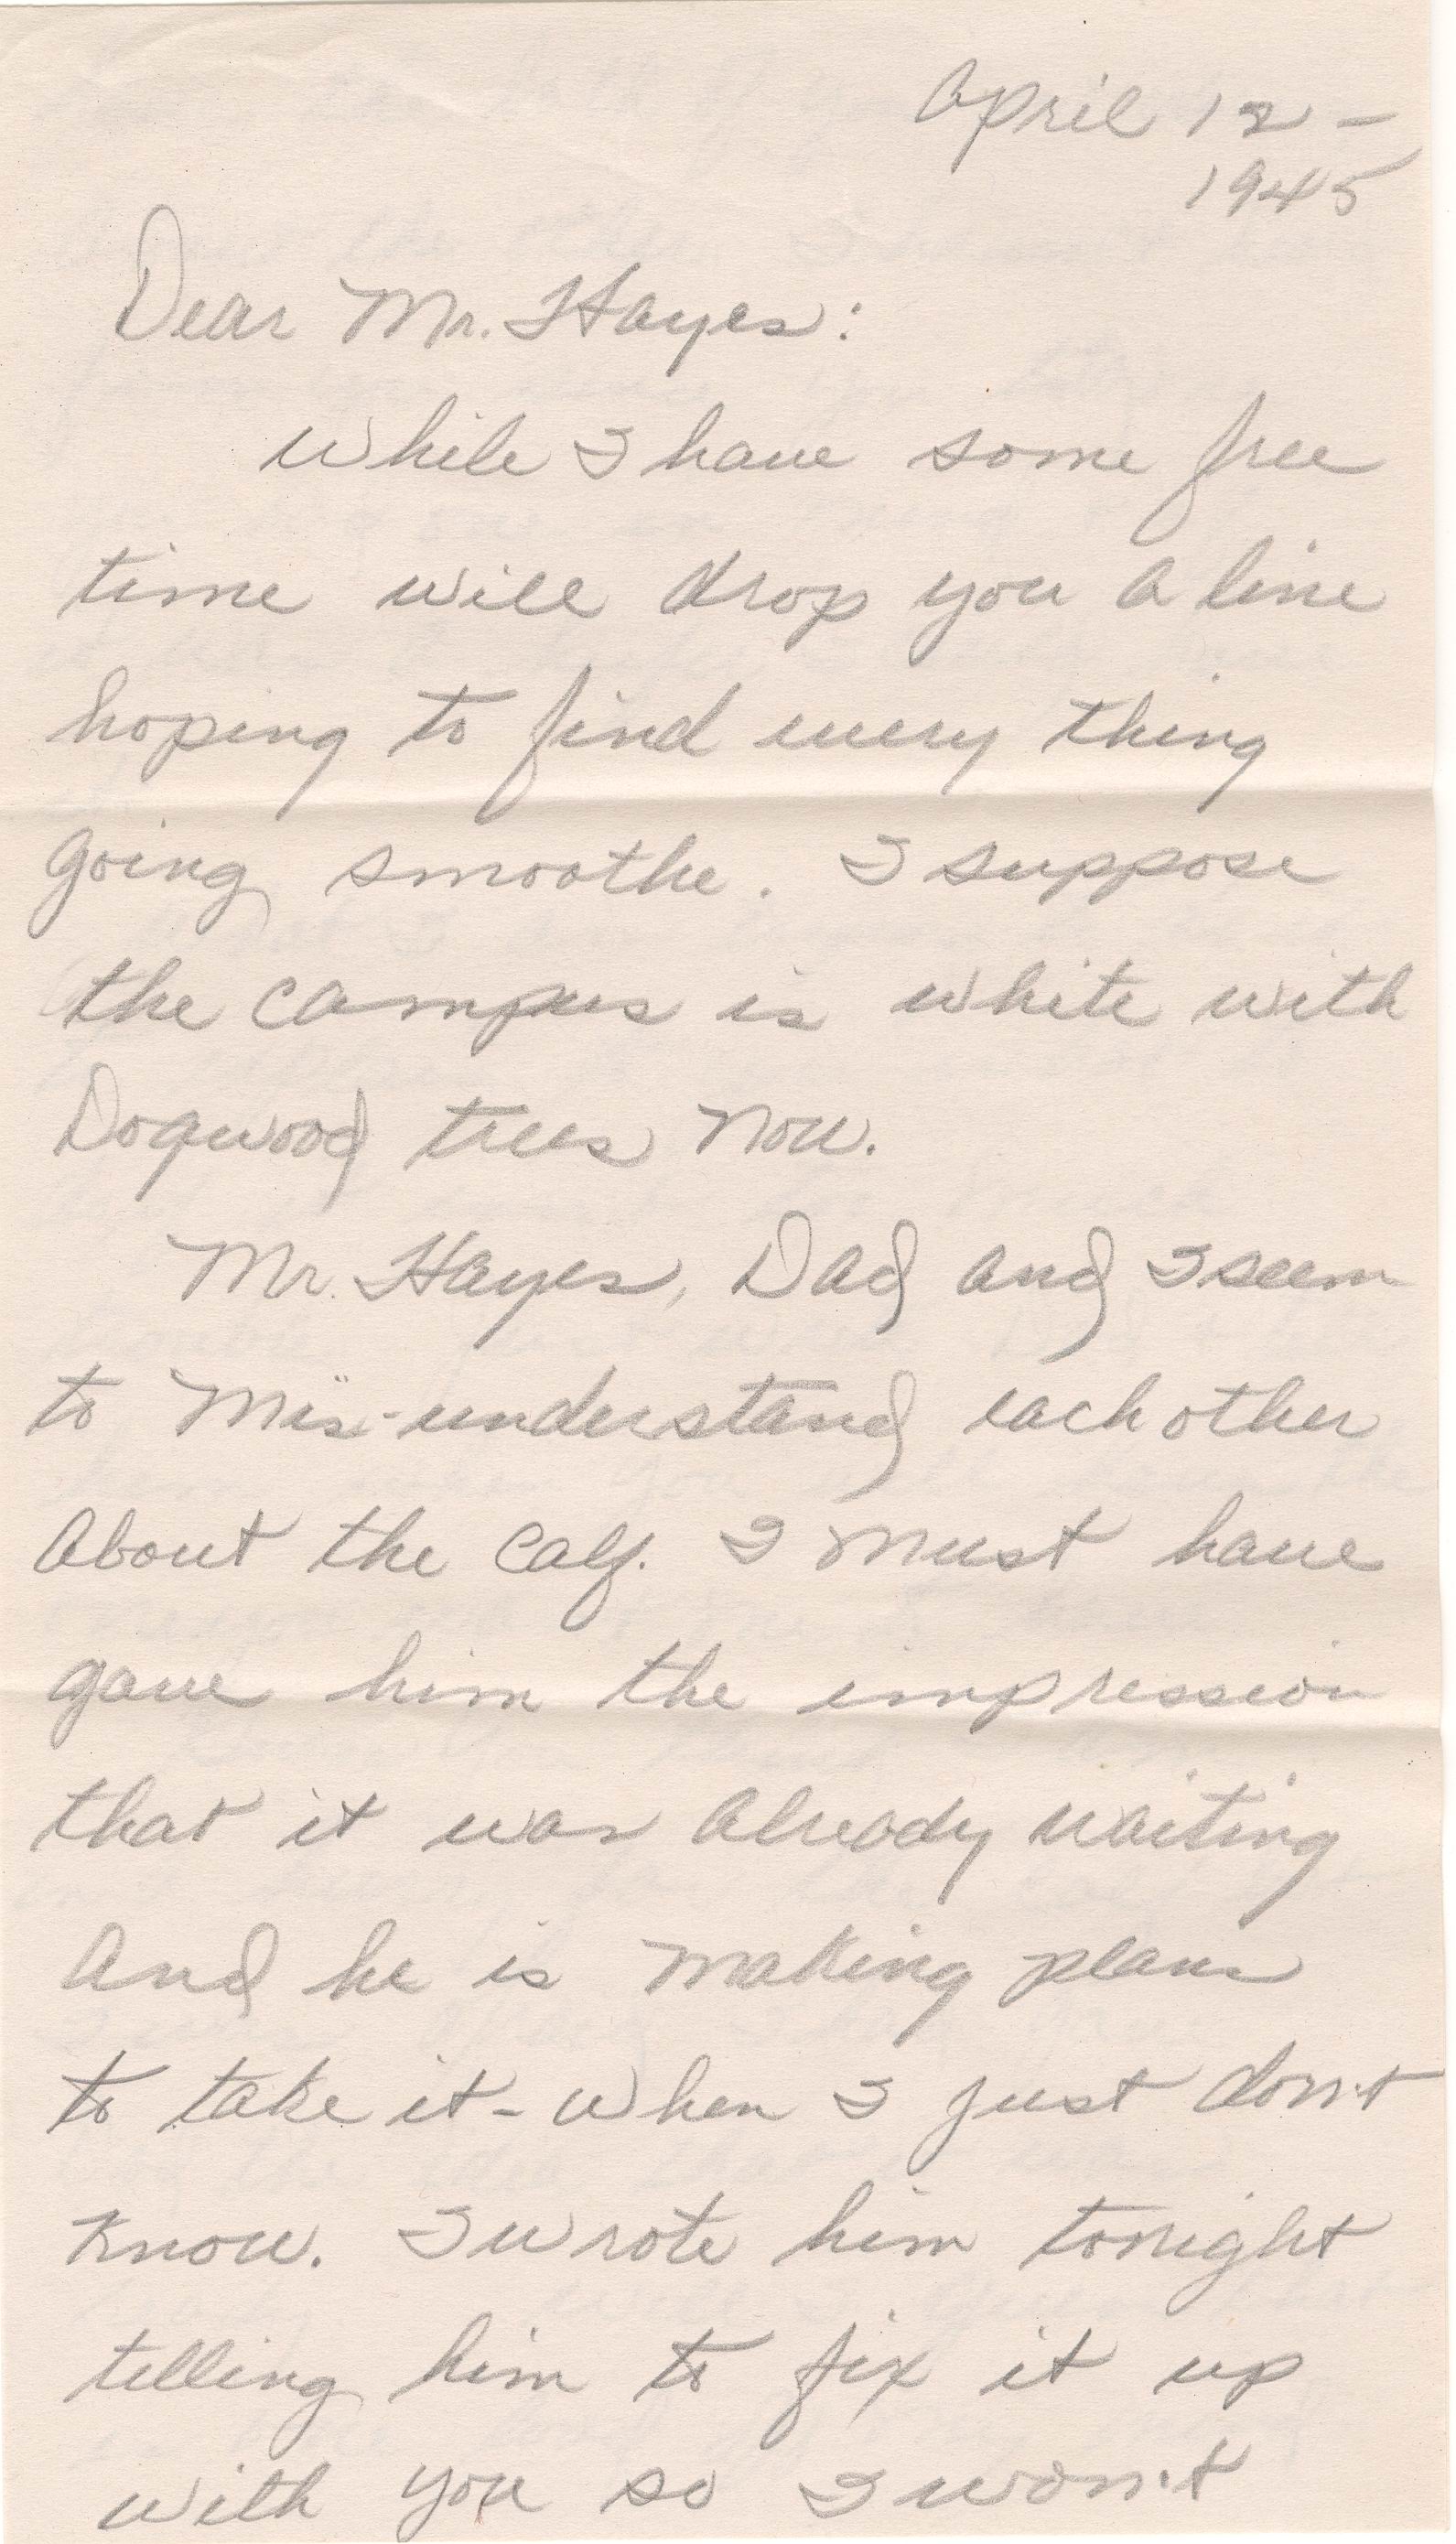 April 12 -
1945
Dear Mr. Hayes:
While I have some free
time will drop you a line
hoping to find every thing
going smoothe. I suppose
the campus is white with
Dogwood trees now.
Mr. Hayes, Dad and I seem
to mis-understand each other
about the calf. I must have
gave him the impression
that it was already waiting
and he is making plans
to take it - when I just don't
know. I wrote him tonight
telling him to fix it up
with you so I won't